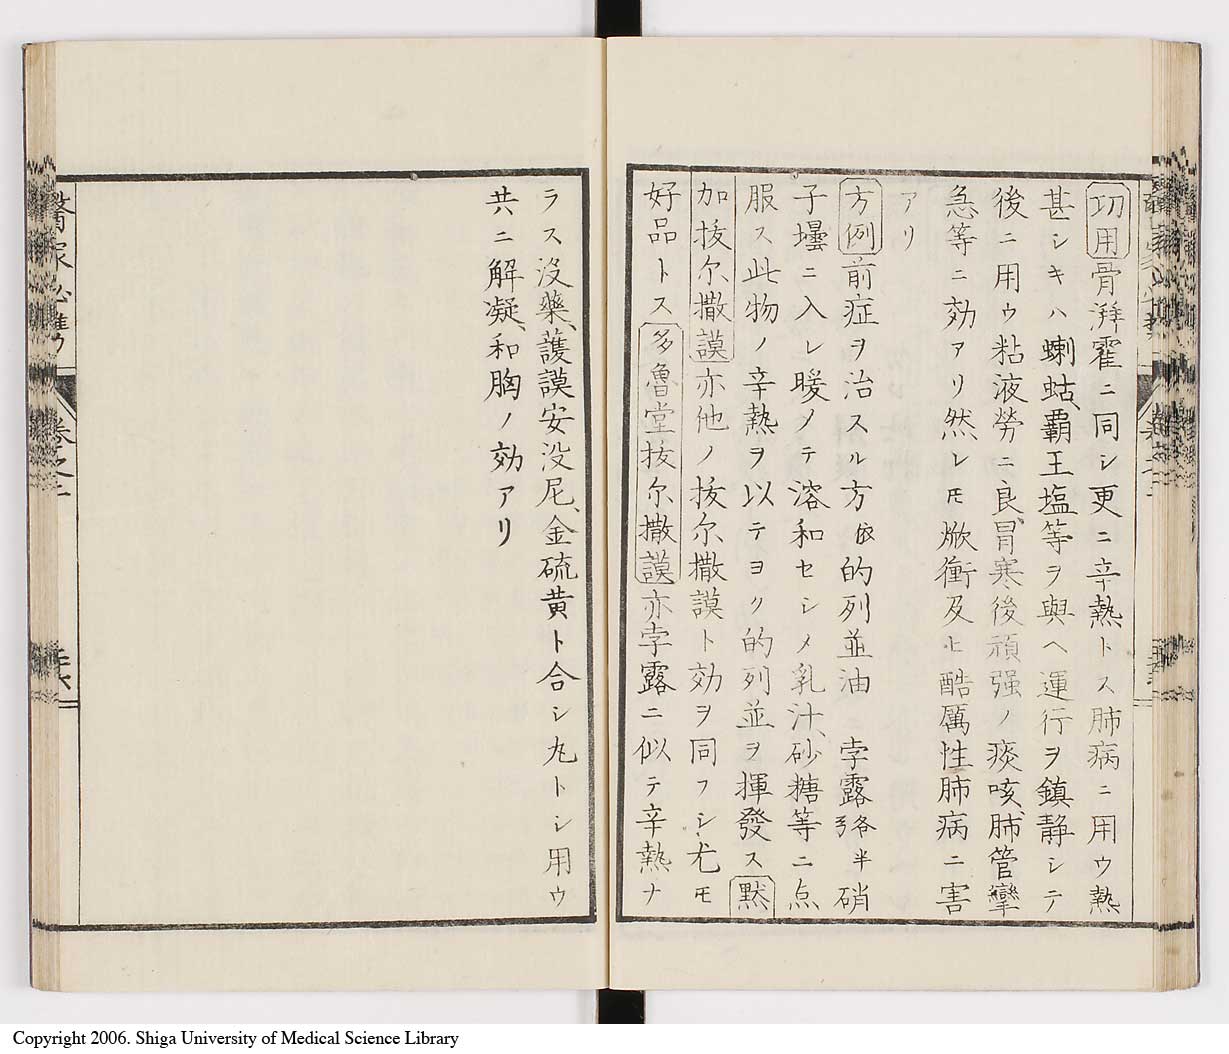 功用骨湃霍ニ同シ更ニ辛熱トス肺病ニ用ウ熱
甚シキハ蝲蛄、覇王塩等ヲ與ヘ運行ヲ鎮静シテ
後ニ用ウ粘液勞ニ良、冒寒後頑强ノ痰咳、肺管攣
急等ニ効アリ然レ𪜈焮衝及ヒ酷厲性肺病ニ害
アリ
方例前症ヲ治スル方依的列並油ニ孛露弱半硝
子壜ニ入レ暖メテ溶和セシメ乳汁、砂糖等ニ点
服ス此物ノ辛熱ヲ以テヨク的列並ヲ揮發ス黙
加抜尓撒謨亦他ノ抜尓撒謨ト効ヲ同フシ尤モ
好品トス多魯堂抜尓撒謨亦孛露ニ似テ辛熱ナ
ラス没藥、護謨安没尼、金硫黄ト合シ丸トシ用ウ
共ニ解凝、和胸ノ効アリ
卷之二